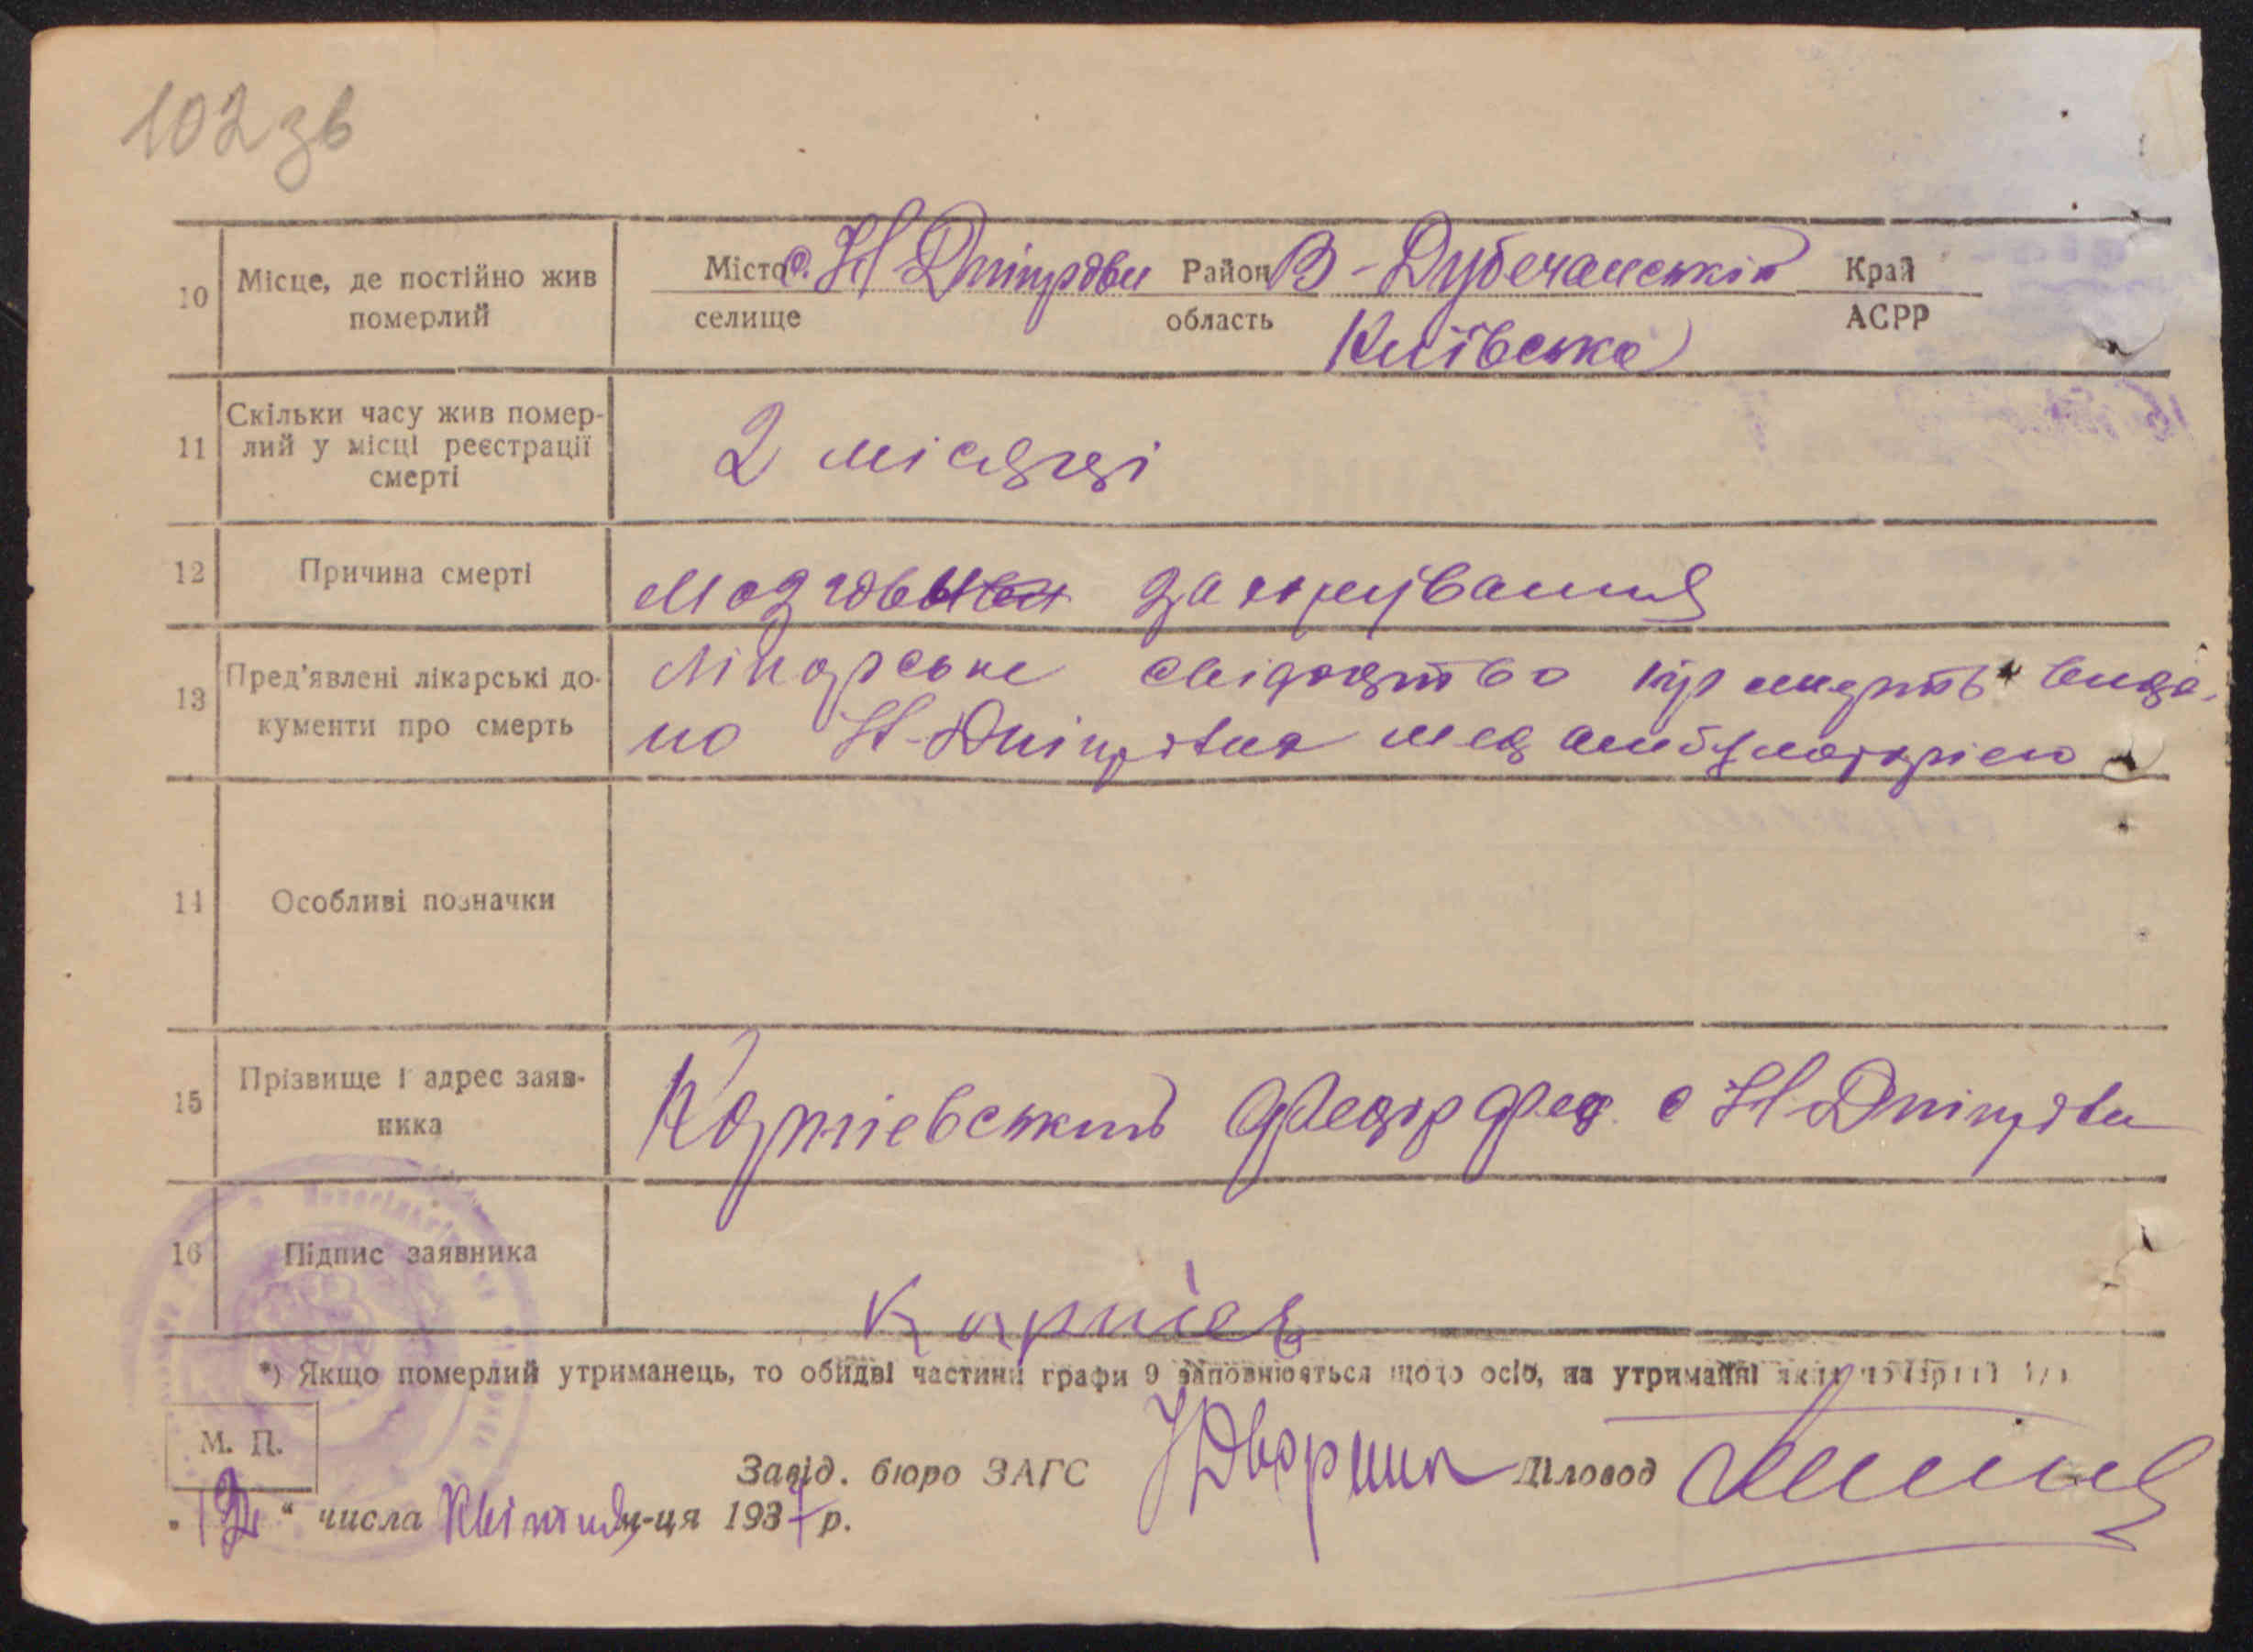 102 зв
10 Місце, де постійно жив померлий
Місто с. Н Дніпрови Район В-Дубечанський Край
селище область Київська АСРР
11 Скільки часу жив помер-
лий у місці реєстрації
смерті
2 місяці
12 Причина смерті
Мозгове
13 Пред'явлені лікарські до-
кументи про смерть
Лікарське свідоцтво про смерть вида-
но Н-Дніпровна мед амбулаторією
14 Особливі позначки
15 Прізвище і адрес заяв-
ника
Корнієвський Федор Фед. с Н Дніпрови
16 Підпис заявника
Корнієв
*) Якщо померлий утриманець, то обидві частини графи 9 заповнюються щодо осіб, на утриманні яких
М. П.
Завід. бюро ЗАГС Дворник Діловод
"12" числа Квітня м-ця 1937 р.